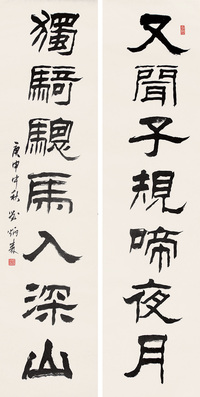 又聞子規啼夜月
獨騎驄馬入深山
庚申中秋劉炳森